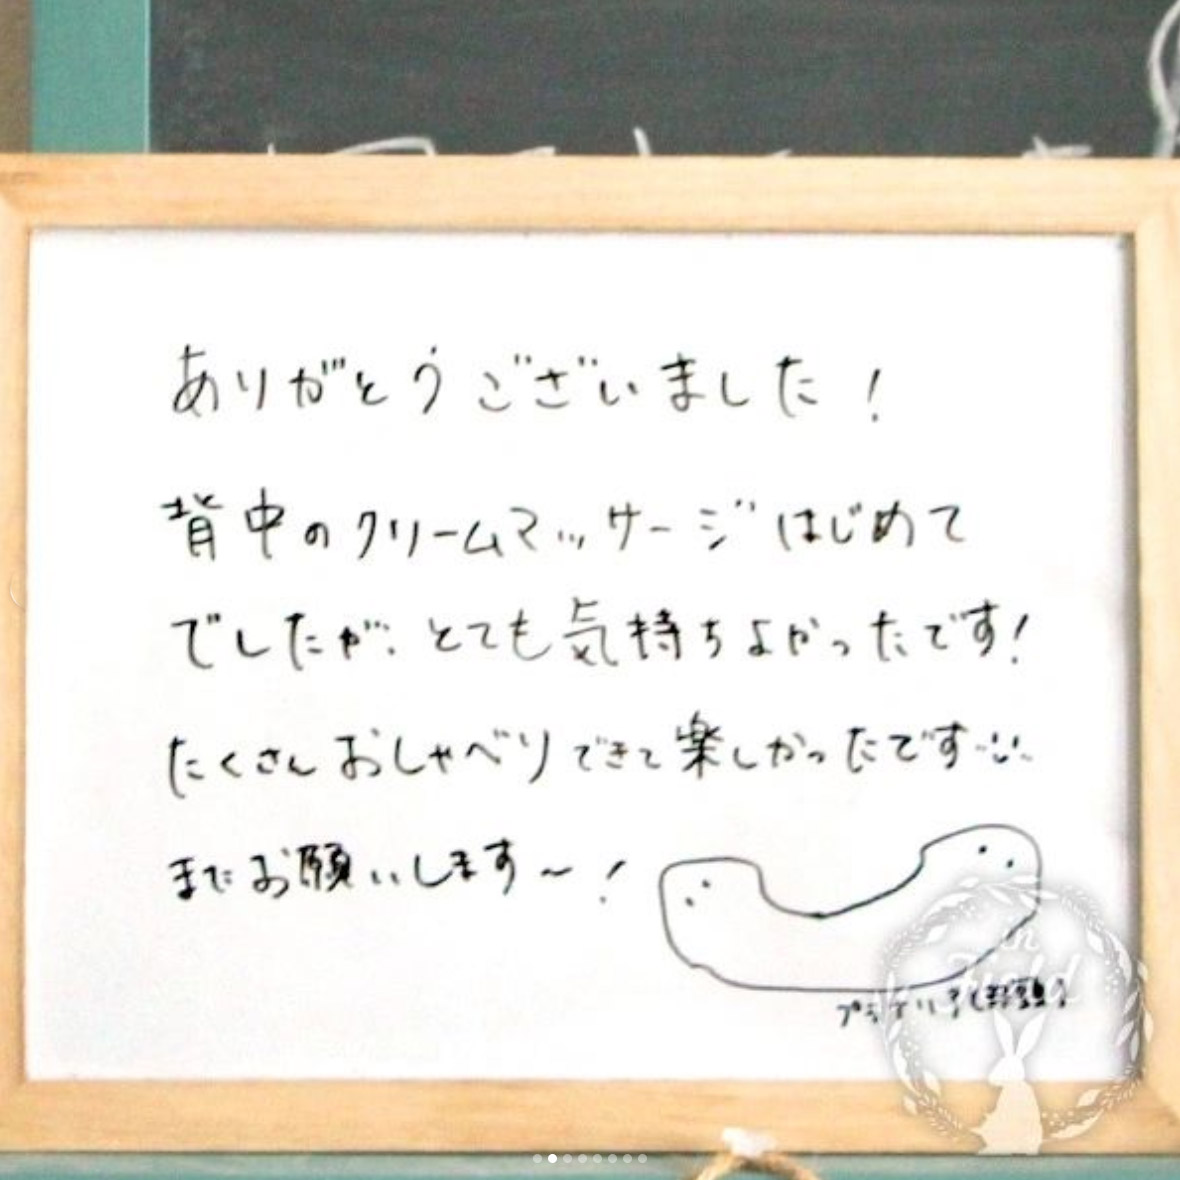 ありがとうございました！
背中のクリームマッサージはじめて
でしたが、とても気持ちよかったです！
たくさんおしゃべりできて楽しかったです
またお願いします〜！
in
Field